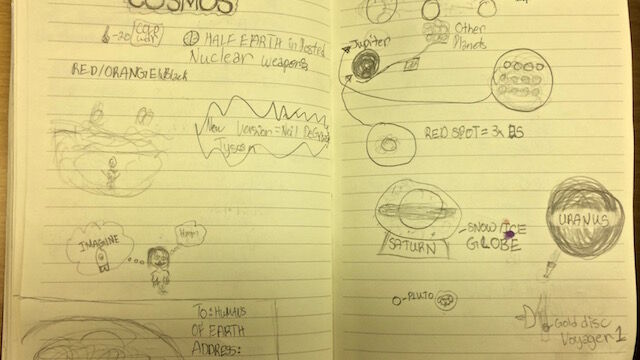 COSMOS
-20
COLD WAR
HALF EARTH in Hosted
Nuclear weapons
RED/ORANGE/Black
New Version = Neil DeGrasse
Tyson
IMAGINE
Hmm
TO: HUMANS
OF EARTH
ADDRESS:
Other
Planets
Jupiter
RED SPOT = 3x
SATURN
SNOW/ICE
GLOBE
URANUS
PLUTO
Gold disc
Voyager 1